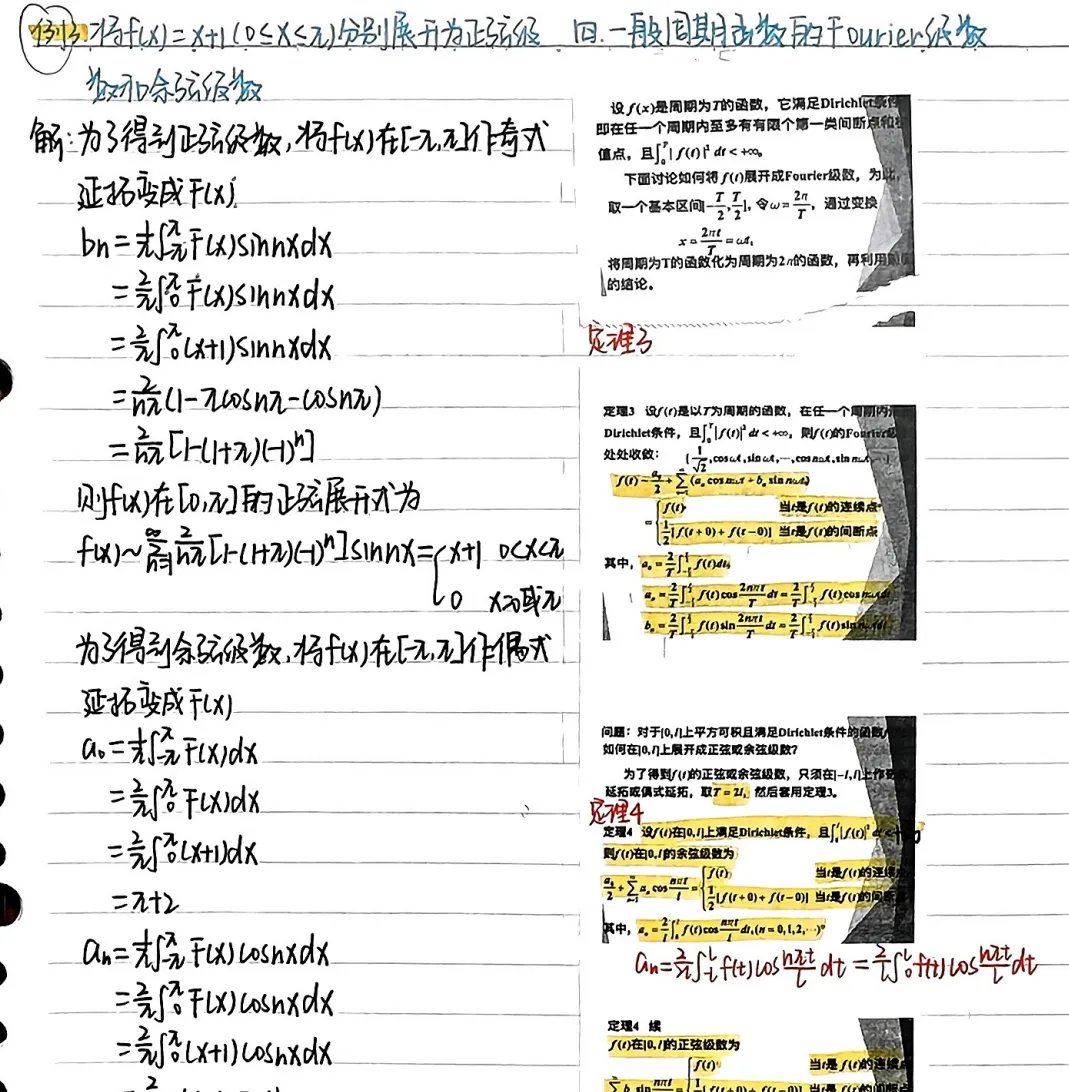 例3 将f(x)=x+1(0≤x≤π)分别展开为正弦级
数和余弦级数
解:为了得到正弦级数,将f(x)在[-π,π]作奇式
延拓变成F(x)
bn=1/π∫_{-π}^{π}F(x)sinnxdx
=2/π∫_0^πF(x)sinnxdx
=2/π∫_0^π(x+1)sinnxdx
=2/nπ(1-πcosnπ-cosnπ)
=2/nπ[1-(1+π)(-1)^n]
则f(x)在[0,π]的正弦展开式为
f(x)~∑_{n=1}^∞ 2/nπ[1-(1+π)(-1)^n]sinnx={x+1 0<x<π
0 x=0或π
为了得到余弦级数,将f(x)在[-π,π]作偶式
延拓变成F(x)
a₀=1/π∫_{-π}^{π}F(x)dx
=2/π∫_0^πF(x)dx
=2/π∫_0^π(x+1)dx
=π+2
an=1/π∫_{-π}^{π}F(x)cosnxdx
=2/π∫_0^πF(x)cosnxdx
=2/π∫_0^π(x+1)cosnxdx
四.一般周期函数的Fourier级数
设f(x)是周期为T的函数,它满足Dirichlet条件
即在任一个周期内至多有有限个第一类间断点和
值点,且∫_0^T|f(t)|² dt<+∞。
下面讨论如何将f(t)展开成Fourier级数,为此,
取一个基本区间[-T/2,T/2],令ω=2π/T,通过变换
x=2πt/T=ωt,
将周期为T的函数化为周期为2π的函数,再利用
的结论。
定理3
定理3 设f(t)是以T为周期的函数,在任一个周期内
Dirichlet条件,且∫_0^T|f(t)|² dt<+∞,则f(t)的Fourier
处处收敛: {1/√2,cosωt,sinωt,…,cosnωt,sinnωt,…}
f(t)=a₀/2+∑_{n=1}^∞(aₙcosnωt+bₙsinnωt)
={f(t) 当t是f(t)的连续点
1/2[f(t+0)+f(t-0)] 当t是f(t)的间断点
其中,a₀=2/T∫_{-T/2}^{T/2}f(t)dt,
aₙ=2/T∫_{-T/2}^{T/2}f(t)cos2nπt/T dt=2/T∫_{-T/2}^{T/2}f(t)cosnωtdt
bₙ=2/T∫_{-T/2}^{T/2}f(t)sin2nπt/T dt=2/T∫_{-T/2}^{T/2}f(t)sinnωtdt
问题:对于[0,l]上平方可积且满足Dirichlet条件的函数
如何在[0,l]上展开成正弦或余弦级数?
为了得到f(t)的正弦或余弦级数,只须在[-l,l]上作奇式
延拓或偶式延拓,取T=2l,然后套用定理3。
定理4
定理4 设f(t)在[0,l]上满足Dirichlet条件,且∫_0^l|f(t)|² dt<+∞
则f(t)在[0,l]的余弦级数为
a₀/2+∑_{n=1}^∞aₙcosnπt/l={f(t) 当t是f(t)的连续点
1/2[f(t+0)+f(t-0)] 当t是f(t)的间断
其中,aₙ=2/l∫_0^l f(t)cosnπt/l dt,(n=0,1,2,…)
an=2/2l∫_{-l}^{l}f(t)cosnπt/l dt=2/l∫_0^l f(t)cosnπt/l dt
定理4 续
f(t)在[0,l]的正弦级数为
{f(t) 当t是f(t)的连续点
∑bₙsinnπt/l=1/2[f(t+0)+f(t-0)] 当t是f(t)的间断点